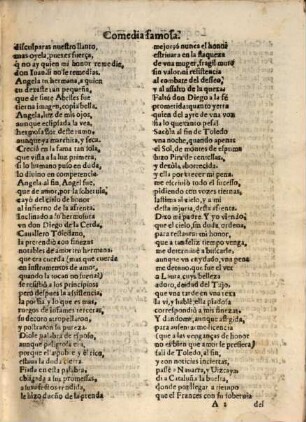 Comedia famosa.
disculparas nuestro llanto,
mas oyela, pues es fuerça,
q̃ no ay quien mi honor remedie,
don Iuan, si no le remedias.
Angela mi hermana, a quien
que de siete Abriles fue
tierna imagen, copia bella,
Angela, luz de mis ojos,
aunque eclipsada la vea,
hermosa flor deste ramo,
aunque ya marchita, y seca.
Crecio en fama tan sola,
que vista a la luz primera,
si lo humano puso en duda,
lo diuino en competencia
Angela al fin, Angel fue,
que de amor, por la soberuia,
cayò del cielo de honor
al infierno de la afrenta.
Inclinado a su hermosura
vn don Diego de la Cerda,
Cauallero Toledano,
la pretendiò con finezas
notables de amor mi hermana
que era cuerda (mas que cuerda
en instrumentos de amor,
quando la tocan no suena?)
se resistiò a los principios
pero despues la assistencia
la porfia y lo que es mas,
ruegos de infames terceras,
su decoro atropellaron,
y postraron su pureza.
Diole palabra de esposo,
aunque peligrosa era,
porque el es pobre y el rico,
essa es la desdicha
Fiada en esta palabra,
obligada a sus promessas,
le hizo dueño de la prenda
mejor, si nunca el honor
estriuara en la flaqueza
de vna muger, fragil muro
sin valor ni resistencia
al combate del desseo,
y al assalto de la quexa.
Faltò don Diego a la fè
prometida; quanto yerra
quien del ayre de vna voz
lo que tanto pesa!
Sacòla al fin de Toledo
vna noche, quando apenas
el Sol, de montes de espuma
hizo Pira de centellas,
y dexòla, aborrecida,
me escriuiò todo el sucesso,
pidiendo con vozes tiernas,
lastima al cielo, y a mi
desta injuria, desta afrenta.
Dixo mi padre Y yo viendo
que el cielo, sin duda, ordena,
para restaurar mi honor,
que a tan infelize tiempo venga,
me determinè a buscarle,
aunque vn cuydado, vna pena
me detenia, que fue el ver
a Laura, cuya belleza
adoro, deidad del Tajo,
que vna tarde en vna rexa
la vi, y hablè
corresponder a mi amor,
aunque no enamorada,
para ausentarme licencia
(que a donde ay honor noble
no es bien que amor le prefiera)
salì de Toledo, al fin,
y con noticias inciertas,
passè a Nauarra, y Vizcaya
di a Cataluña la buelta,
porque en esta ocasion
que el Frances con su soberuia
A 2
del